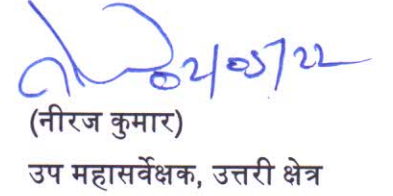 02/05/22
(नीरज कुमार)
उप महासर्वेक्षक, उत्तरी क्षेत्र